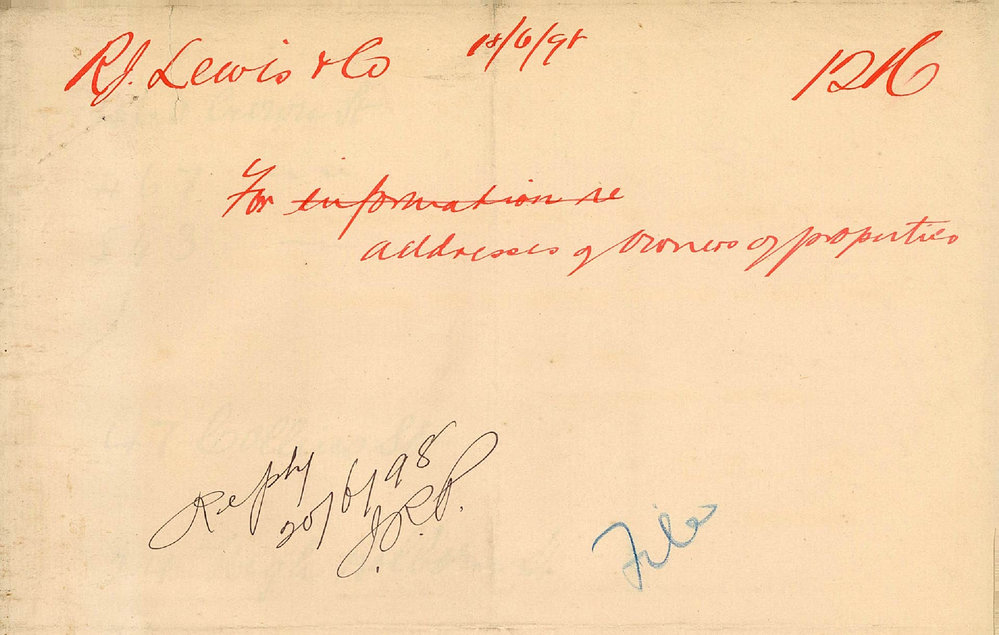 R.J. Lewis & Co 18/6/98
For information re
addresses of owners of properties
Reply
20/6/98
J.R.P.
File